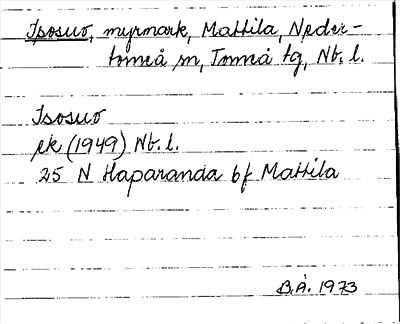 Isosuo, myrmark, Mattila, Neder-
torneå sn, Torneå tg, Nb. l.
Isosuo
ek (1949) Nb. l.
25 N Haparanda bf Mattila
B.Å. 1973